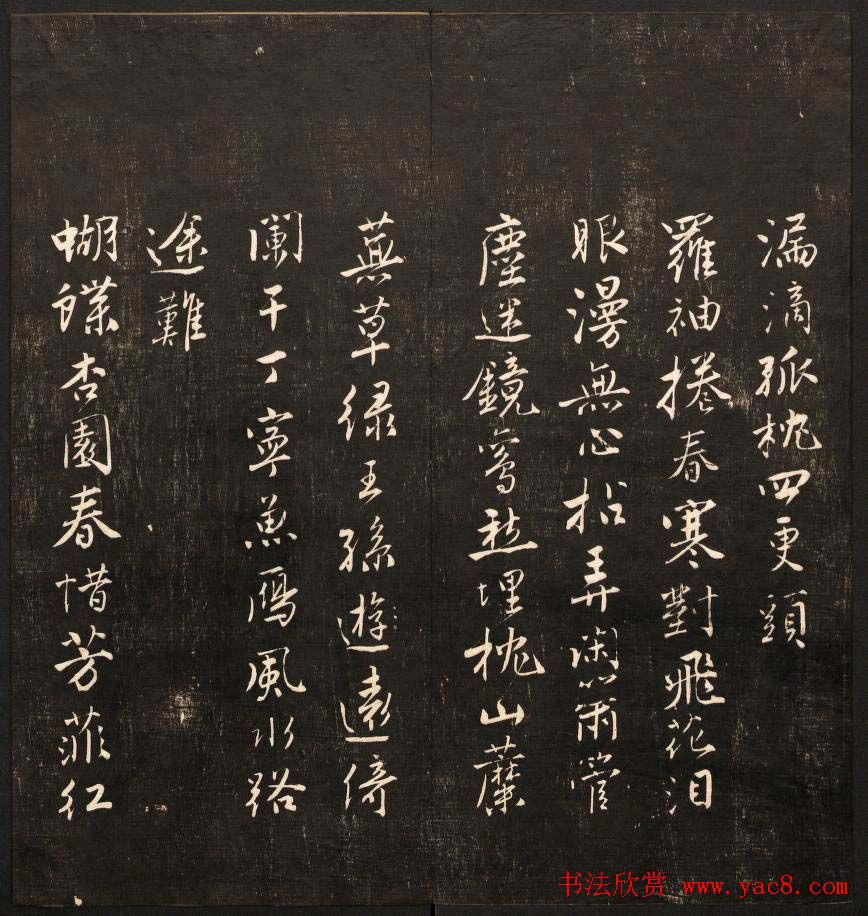 漏滴孤枕四更頭
羅袖捲春寒對飛花泪
眼漫無心拈弄閑簫管
塵迷鏡鸞愁埋枕山蘼
蕪草緑王孫遊遠倚
闌干丁寧魚鴈風水路
途難
蝴蝶杏園春惜芳菲紅
书法欣赏 www.yac8.com